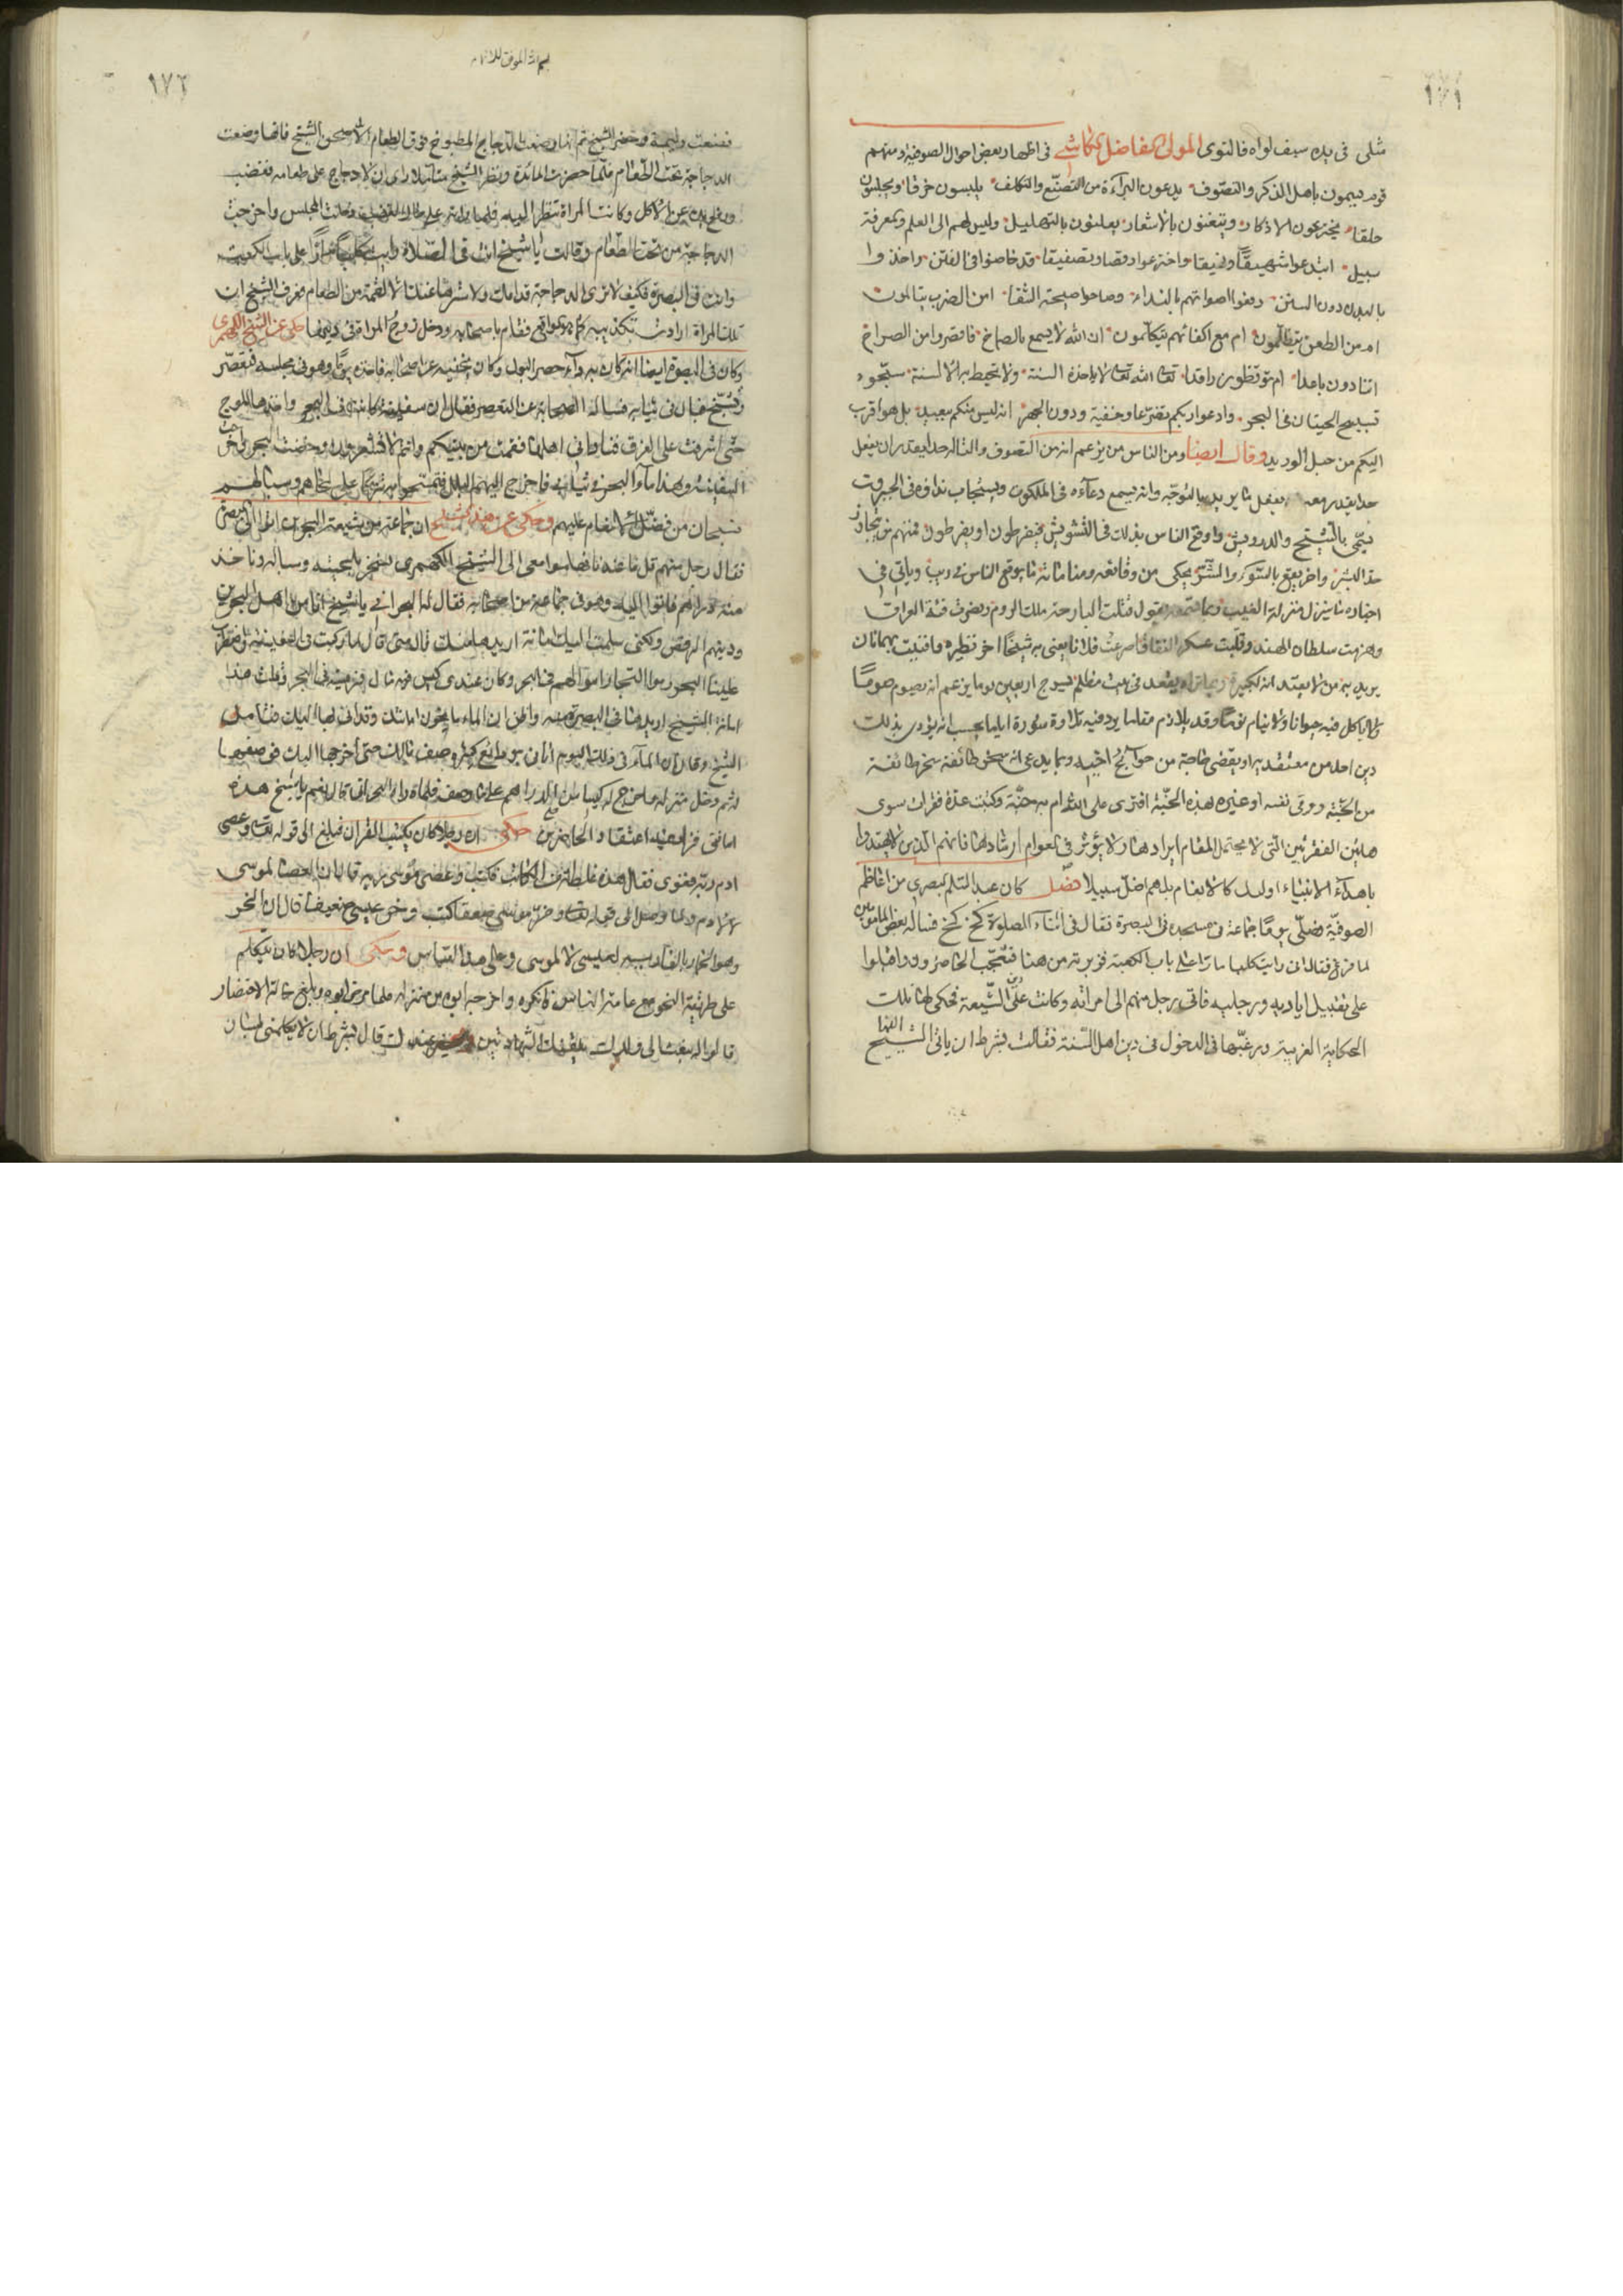 ١٧١
مثلى فى يده سيف لواه فالتوى المولى الفاضل الكاشى فى اظهار بعض احوال الصوفية ومنهم
قوم يسمون باهل الذكر والتصوف يدعون البراءة من التصنع والتكلف يلبسون خرقا ويجلسون
حلقا يخترعون الاذكار ويتغنون بالاشعار يعلنون بالتهليل وليس لهم الى العلم والمعرفة
سبيل ابتدعوا شهيقا ونهيقا واخترعوا رقصا وتصفيقا قد خاضوا فى الفتن واخذوا
بالبدع دون السنن رفعوا اصواتهم بالنداء وصاحوا صيحة الشقا امن الضرب يتالمون
ام من الطعن يتظلمون ام مع اكفائهم يتكلمون ان الله لا يسمع بالصماخ فاقصروا من الصراخ
اتنادون باعدا ام توقظون راقدا تعالى الله تعالى لا ياخذه السنة ولا تحيط به الالسنة سبحوه
تسبيح الحيتان فى البحر وادعوا ربكم تضرعا وخفية ودون الجهر انه ليس منكم ببعيد بل هو اقرب
اليكم من حبل الوريد وقال ايضا ومن الناس من يزعم انه من التصوف والتاله حدا يقدر ان يفعل
معه بفعل ما يريد بالتوجه وانه يسمع دعاءه فى الملكوت ويستجاب نداؤه فى الجبروت
يسمى بالشيخ والدرويش واوقع الناس بذلك فى التشويش فيفرطون او يفرطون فمنهم من يتجاوز
حد البشر واخر يقع بالسوء والشر يحكى من وقائعه ومناماته ما يوقع الناس فى ريب وياتى فى
اخباره ما ينزل منزلة الغيب وربما يقول قتلت البارحة ملك الروم ونصرت فئة العراق
وهزمت سلطان الهند وقلبت عسكر النفاق او صرعت فلانا يعنى به شيخا اخر نظيره او افنيت بهمانا
يريد به من لا يعتقد انه لكبيره وربما تراه يقعد فى بيت مظلم يسرج اربعين يوما يزعم انه يصوم صوما
ولا ياكل فيه حيوانا ولا ينام نوما وقد يلازم مقاما يردد فيه تلاوة سورة اياما يحسب انه يؤدى بذلك
دين احد من معتقديه او يقضى حاجة من حوائج اخيه وربما يدعى انه سخر طائفة
من الجنة ووقى نفسه او غيره بهذه الجنة افترى على الله ام به جنة وكتبت عدة فقرات سوى
هاتين الفقرتين التى لا يحتمل المقام ايرادها ولا يؤثر فى العوام ارشادها فانهم الذين لا يهتدوا
باهداء الانبياء اولئك كالانعام بل هم اضل سبيلا فصل كان عبد السلم البصرى من اعاظم
الصوفية فصلى يوما جماعة فى مسجده فى البصرة فقال فى اثناء الصلوة كخ كخ فساله بعض المامومين
لما فرغ فقال انى رايت كلبا مارا على باب الكعبة فزبرته من هنا فتعجب الحاضرون واقبلوا
على تقبيل اياديه ورجليه فاتى رجل منهم الى امراته وكانت على دين الشيعة فحكى لها تلك
الحكاية الغريبة ورغبها فى الدخول فى دين اهل السنة فقالت بشرط ان ياتى الشيخ الينا
١٧٢
فصنعت وليمة وحضر الشيخ ثم انها وضعت الدجاج المطبوخ فوق الطعام الا صحن الشيخ فانها وضعت
الدجاجة تحت الطعام فلما حضرت المائدة ونظر الشيخ متاملا راى ان لا دجاج على طعامه فغضب
ورفع يده عن الاكل وكانت المراة تنظر اليه فلما راته على حال الغضب دخلت المجلس واخرجت
الدجاجة من تحت الطعام وقالت يا شيخ انت فى الصلاة رايت كلبا مارا على باب الكعبة
وانت فى البصرة فكيف لا ترى الدجاجة قدامك ولا سترها عنك الا لقمة من الطعام فعرف الشيخ ان
تلك المراة ارادت تكذيبه فقام باصحابه ودخل زوج المراة فى دينها حكى عن الشيخ الكهمرى
وكان فى البصرة ايضا انه كان به داء حصر البول وكان يخفيه عن اصحابه فاخذه يوما وهو فى مجلسه فتعصر
فبال فى ثيابه فساله اصحابه عن التعصر فقال ان سفينة كانت فى البحر واخذها الموج
حتى اشرفت على الغرق فنادانى اهلها فقمت من بينكم وانتم لا تشعرون وخضت البحر واخرجت
السفينة وهذا ماء البحر فى ثيابى فاخرج اليهم البلل فتمسحوا به تبركا على لحاهم وسبالهم
فسبحان من فضل الانعام عليهم وحكى عن هذا الشيخ ان جماعة من شيعة البحرين اتوا الى البصرة
فقال رجل منهم قل ما عندنا فامضوا معى الى الشيخ الكهمرى نسخر بلحيته وساله وناخذ
منه دراهم فاتوا اليه وهو فى جماعة من اصحابه فقال له البحرانى يا شيخ انا من اهل البحرين
ودينهم الرفض ولكنى سلمت اليك امانة اريدها منك قال متى قال لما ركبت فى السفينة واضطرب
علينا البحر رموا التجار اموالهم فى البحر وكان عندى كيس فيه مال فرميته فى البحر وقلت هذا
امانة الشيخ اريدها فى البصرة منه واظن ان الماء ما يخون امانتك وقد اتى بها اليك فتامل
الشيخ وقال ان الماء فى ذلك اليوم اتانى بودائع كثيرة وصف مالك حتى اخرجها اليك فوصفها
له ثم دخل منزله فاخرج له كيسا من الدراهم على ما وصف فلما راه البحرانى قال نعم يا شيخ هذه
امانتى فزاد فيه اعتقاد الحاضرين حكى ان رجلا كان يكتب القران فبلغ الى قوله تعالى وعصى
ادم ربه فغوى فقال هذه غلط من الكاتب فكتب وعصى موسى ربه قال لان العصا لموسى
لا لادم ولما وصل الى قوله تعالى وخر موسى صعقا كتب وخر عيسى صعقا قال لان الخر
وهو الحمار بالفارسية لعيسى لا لموسى وعلى هذا القياس وحكى ان رجلا كان يتكلم
على طريقة النحو مع عامة الناس فانكره واخرجه ابوه من منزله فلما مرض ابوه وبلغ حالة الاحتضار
قالوا له نبعث الى ولدك يلقنك الشهادتين ويحضر عندك قال بشرط ان لا يكلمنى بلسان